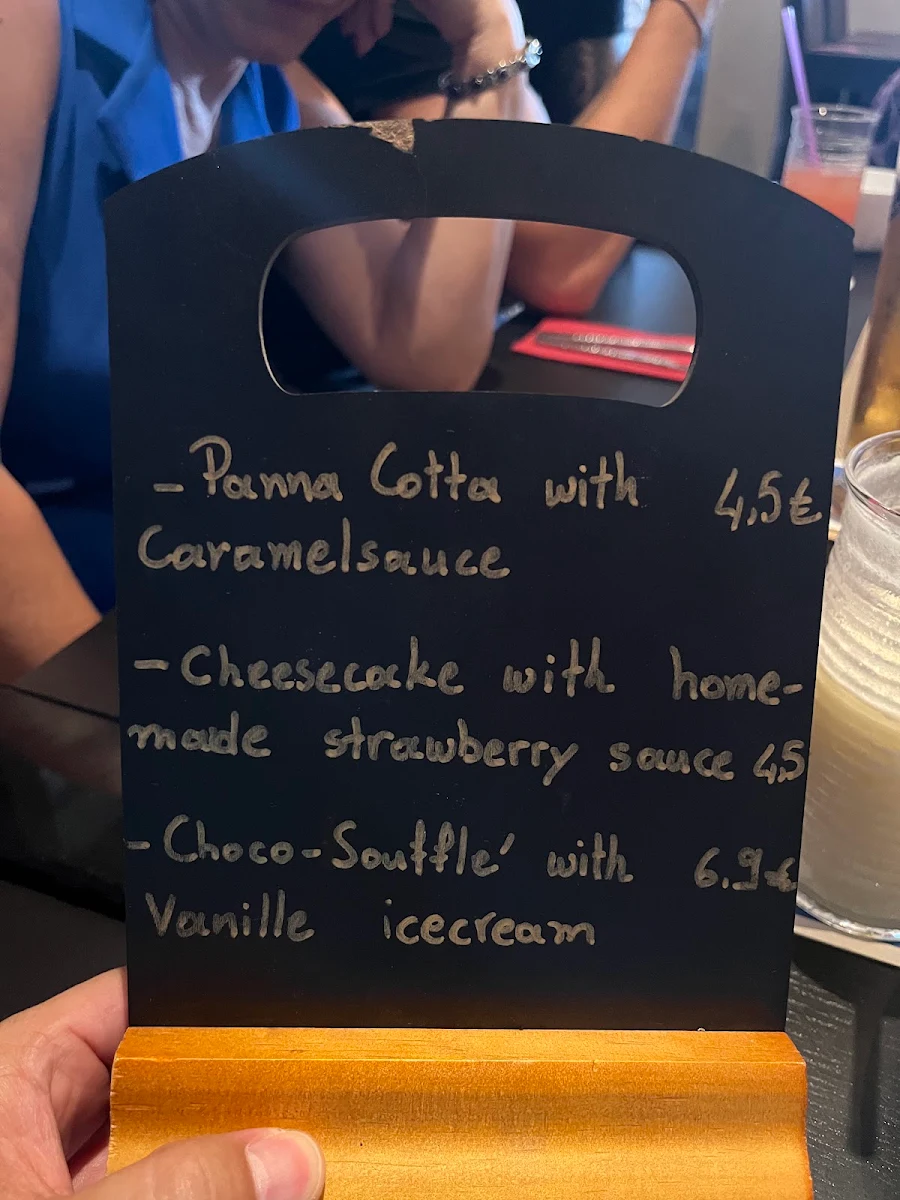 - Panna Cotta with 4,5€
Caramelsauce
- Cheesecake with home-
made strawberry sauce 4,5
- Choco-Soufflé with 6.9€
Vanille icecream